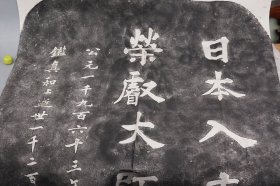 日本入
榮叡大師
公元一千九百六十三年
鑑真和上逝世一千二百